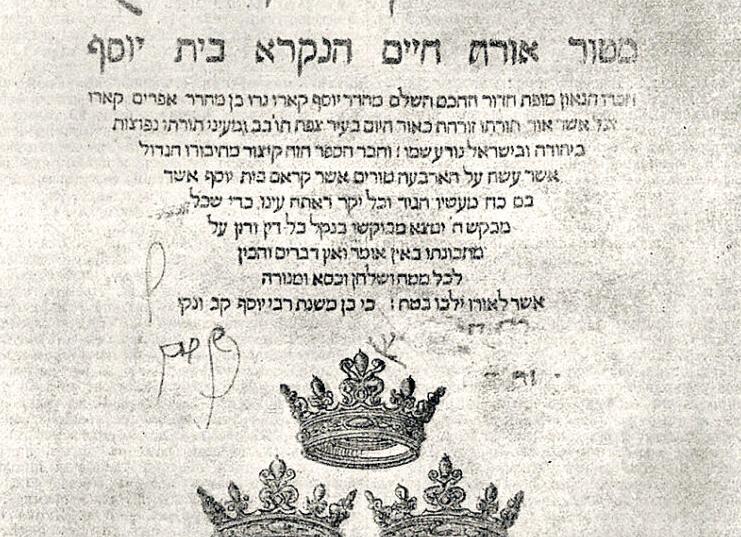 מטור אורח חיים הנקרא בית יוסף
חברו הגאון מופת הדור החכם השלם מהרר יוסף קארו נרו בן מהרר אפרים קארו
זצל אשר אור תורתו זורחת כאור היום בעיר צפת תו'בב ומעיני תורתו נפוצות
ביהודה ובישראל נודע שמו: וחבר הספר הזה קיצור מחיבורו הגדול
אשר עשה על הארבעה טורים אשר קראם בית יוסף אשר
בם כח מעשיו הגיד וכל יקר ראתה עינו, כדי שכל
מבקש ה' ימצא מבוקשו בנקל כל דין ודין על
מתכונתו באין אומר ואין דברים והכין
לכל ממה ושלחן וכסא ומנורה
אשר לאורו ילכו בטח: כי כן משנת רבי יוסף קב ונקי